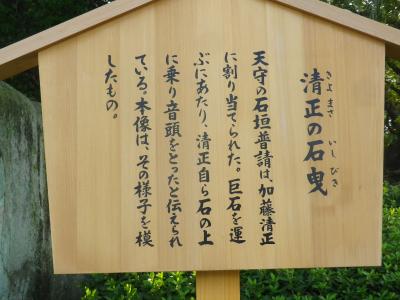 清正の石曳
きよまさ いしびき
天守の石垣普請は、加藤清正
に割り当てられた。巨石を運
ぶにあたり、清正自ら石の上
に乗り音頭をとったと伝えられ
ている。本像は、その様子を模
したもの。